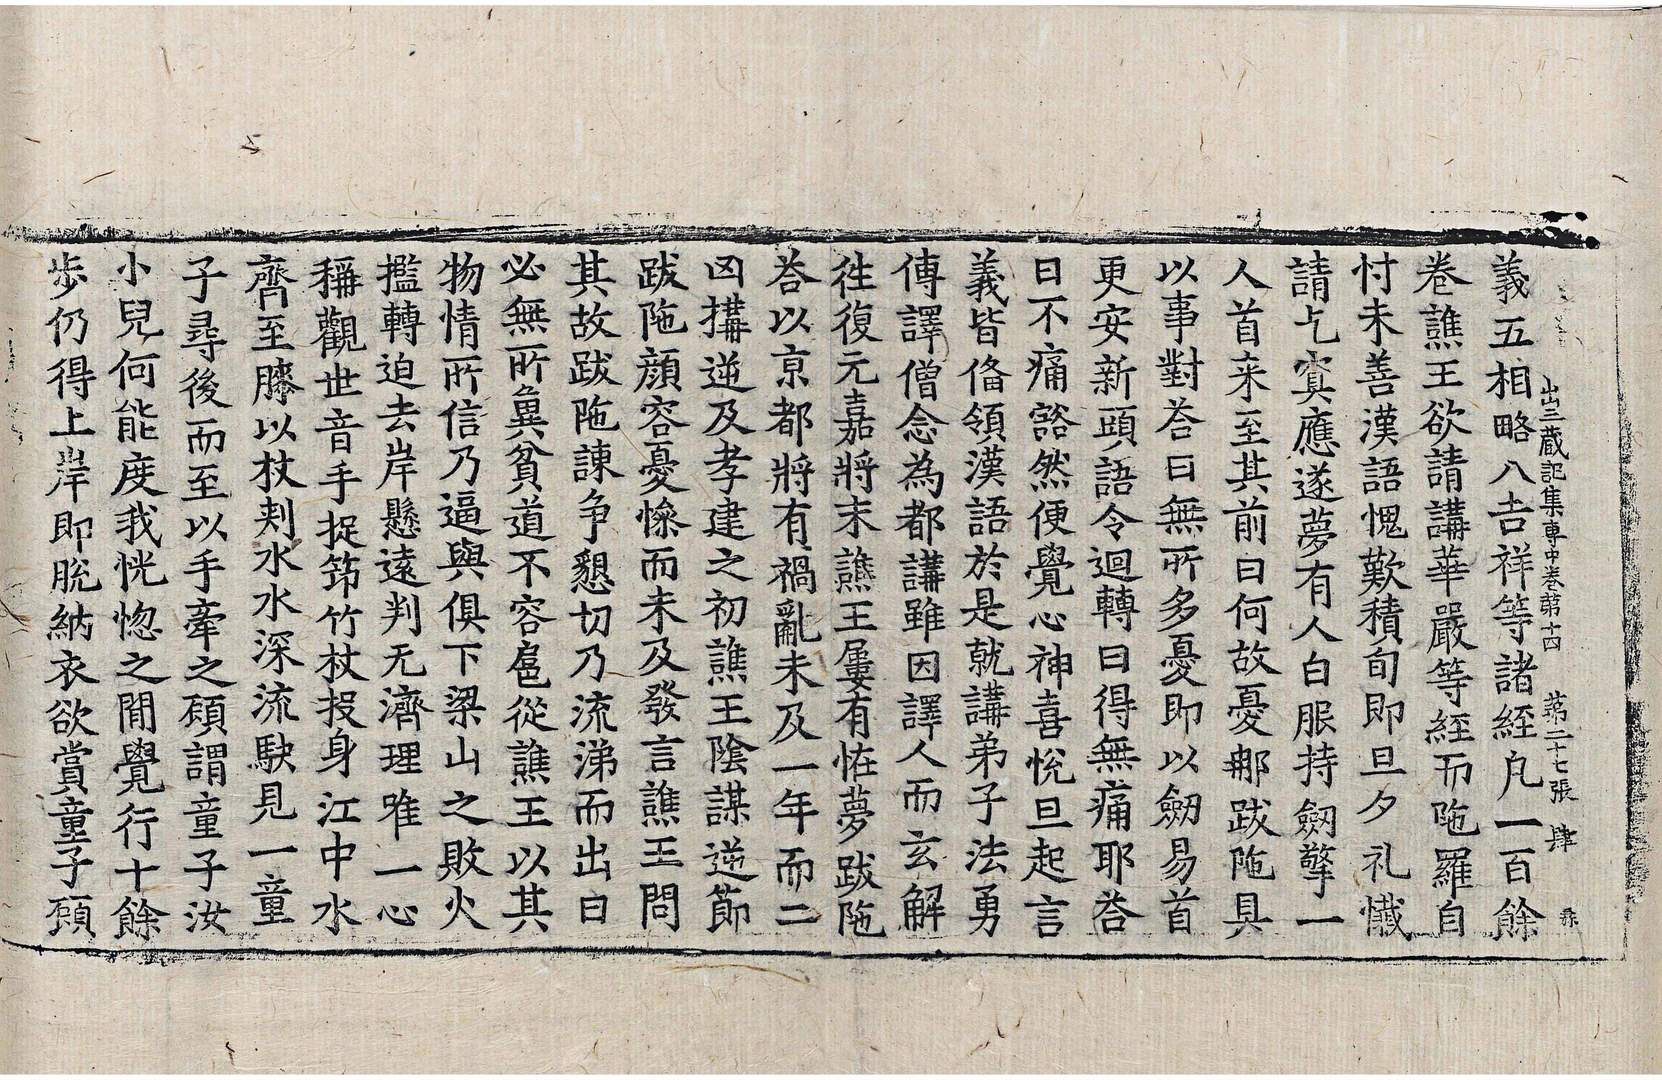 出三藏記集傳中卷第十四 第二十七張 肆
義五相略八吉祥等諸經凡一百餘
卷譙王欲請講華嚴等經而陁羅自
忖未善漢語愧歎積旬即旦夕礼懺
請乞冥應遂夢有人白服持劒擎一
人首来至其前曰何故憂耶跋陁具
以事對荅曰無所多憂即以劒易首
更安新頭語令迴轉曰得無痛耶荅
曰不痛豁然便覺心神喜悅旦起言
義皆俻領漢語於是就講弟子法勇
傳譯僧念為都講雖因譯人而玄解
往復元嘉將末譙王屢有恠夢跋陁
荅以京都將有禍亂未及一年而二
凶搆逆及孝建之初譙王陰謀逆節
跋陁顔容憂慘而未及發言譙王問
其故跋陁諫争懇切乃流涕而出曰
必無所兾貧道不容扈從譙王以其
物情所信乃逼與俱下梁山之敗火
艦轉迫去岸懸遠判无濟理唯一心
稱觀世音手捉笻竹杖投身江中水
齊至膝以杖刺水水深流駛見一童
子尋後而至以手牽之顧謂童子汝
小兒何能度我恍惚之閒覺行十餘
步仍得上岸即脫納衣欲賞童子顧